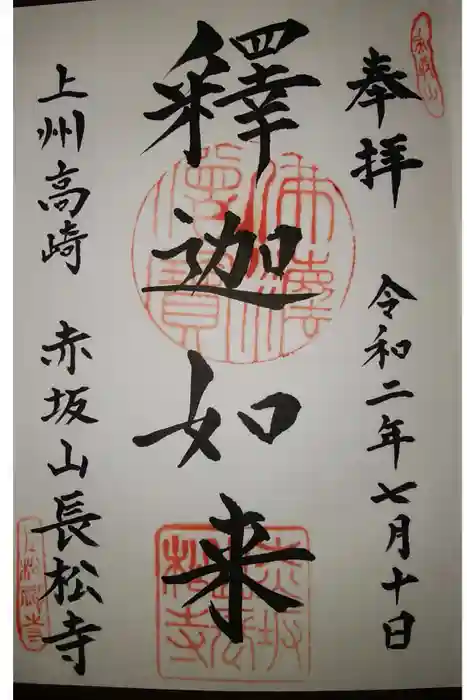 奉拝
令和二年七月十日
釋迦如来
上州高崎 赤坂山長松寺
佛法僧寳